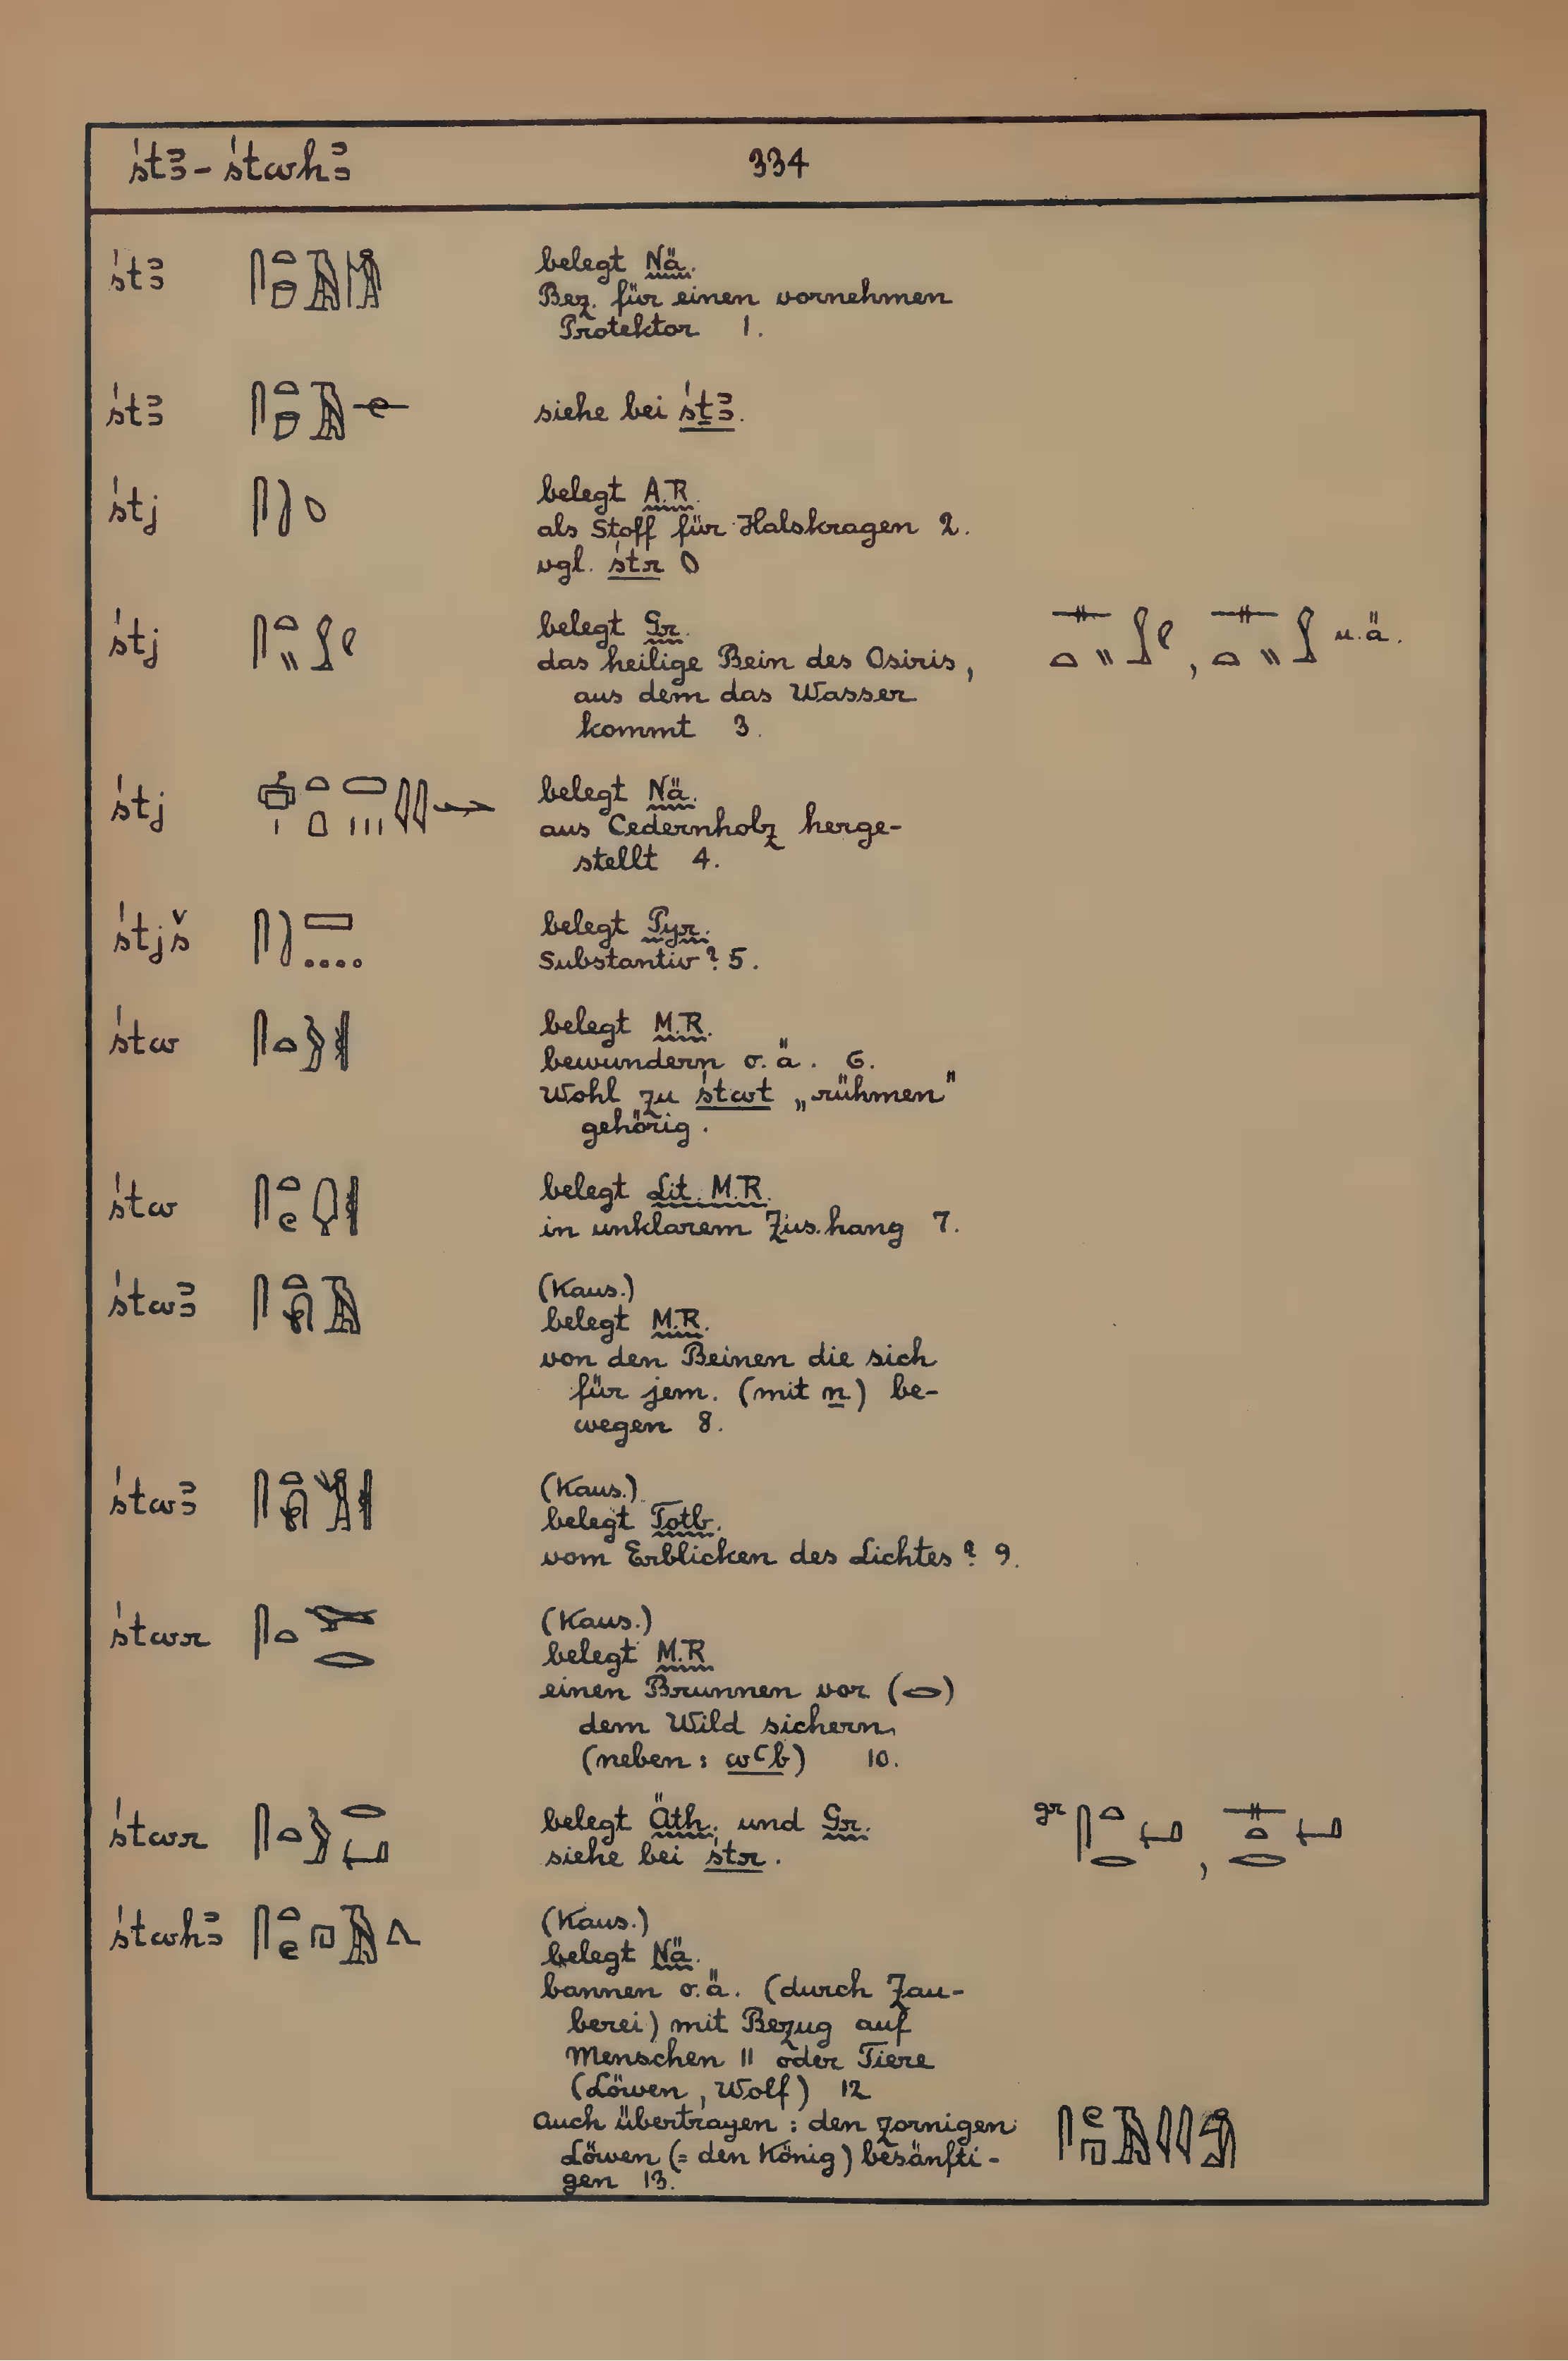 śtꜣ - śtwhꜣ 334
śtꜣ belegt Nä.
Bez. für einen vornehmen
Protektor 1.
śtꜣ siehe bei śṯꜣ.
śtj belegt A.R.
als Stoff für Halskragen 2.
vgl. śtr
śtj belegt Gr.
das heilige Bein des Osiris, u.ä.
aus dem das Wasser
kommt 3.
śtj belegt Nä.
aus Cedernholz herge-
stellt 4.
śtjš belegt Pyr.
Substantiv? 5.
śtw belegt M.R.
bewundern o.ä. 6.
Wohl zu śtwt „rühmen"
gehörig.
śtw belegt Lit. M.R.
in unklarem Zus.hang 7.
śtwꜣ (Kaus.)
belegt M.R.
von den Beinen die sich
für jem. (mit n) be-
wegen 8.
śtwꜣ (Kaus.)
belegt Totb.
vom Erblicken des Lichtes? 9.
śtwr (Kaus.)
belegt M.R.
einen Brunnen vor (𓂋)
dem Wild sichern
(neben: wꜥb) 10.
śtwr belegt Äth. und Gr. gr
siehe bei śtr.
śtwhꜣ (Kaus.)
belegt Nä.
bannen o.ä. (durch Zau-
berei) mit Bezug auf
Menschen 11 oder Tiere
(Löwen, Wolf) 12
auch übertragen: den zornigen
Löwen (= den König) besänfti-
gen 13.